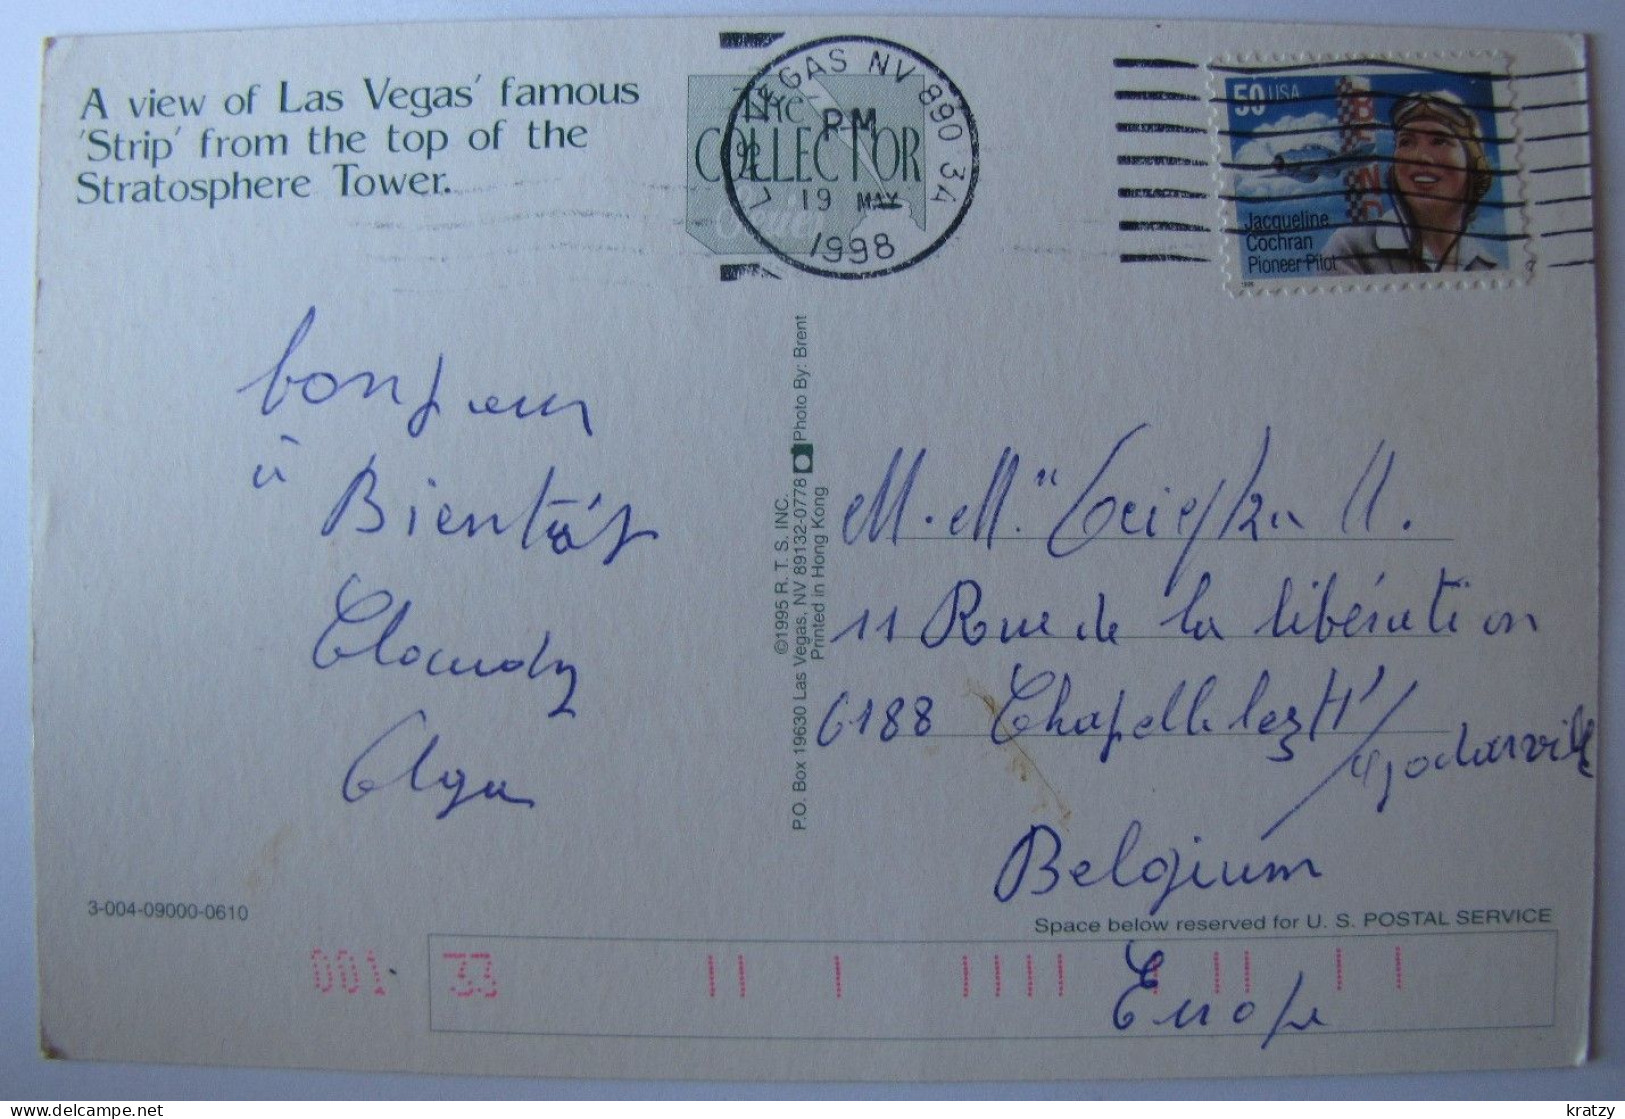 A view of Las Vegas' famous
'Strip' from the top of the
Stratosphere Tower.
The
COLLECTOR
Series
VEGAS NV 890 34
PM
19 MAY
1998
50 USA
BENDIX
Jacqueline
Cochran
Pioneer Pilot
bonjour
à Bientôt
Claudy
Olga
©1995 R. T. S. INC.
P.O. Box 19630 Las Vegas, NV 89132-0778 Photo By: Brent
Printed in Hong Kong
M. M.
11 Rue de la libération
6188 Chapelle lez Ht
/Godarville
Belgium
Space below reserved for U. S. POSTAL SERVICE
Europe
3-004-09000-0610
001 33
kratzy